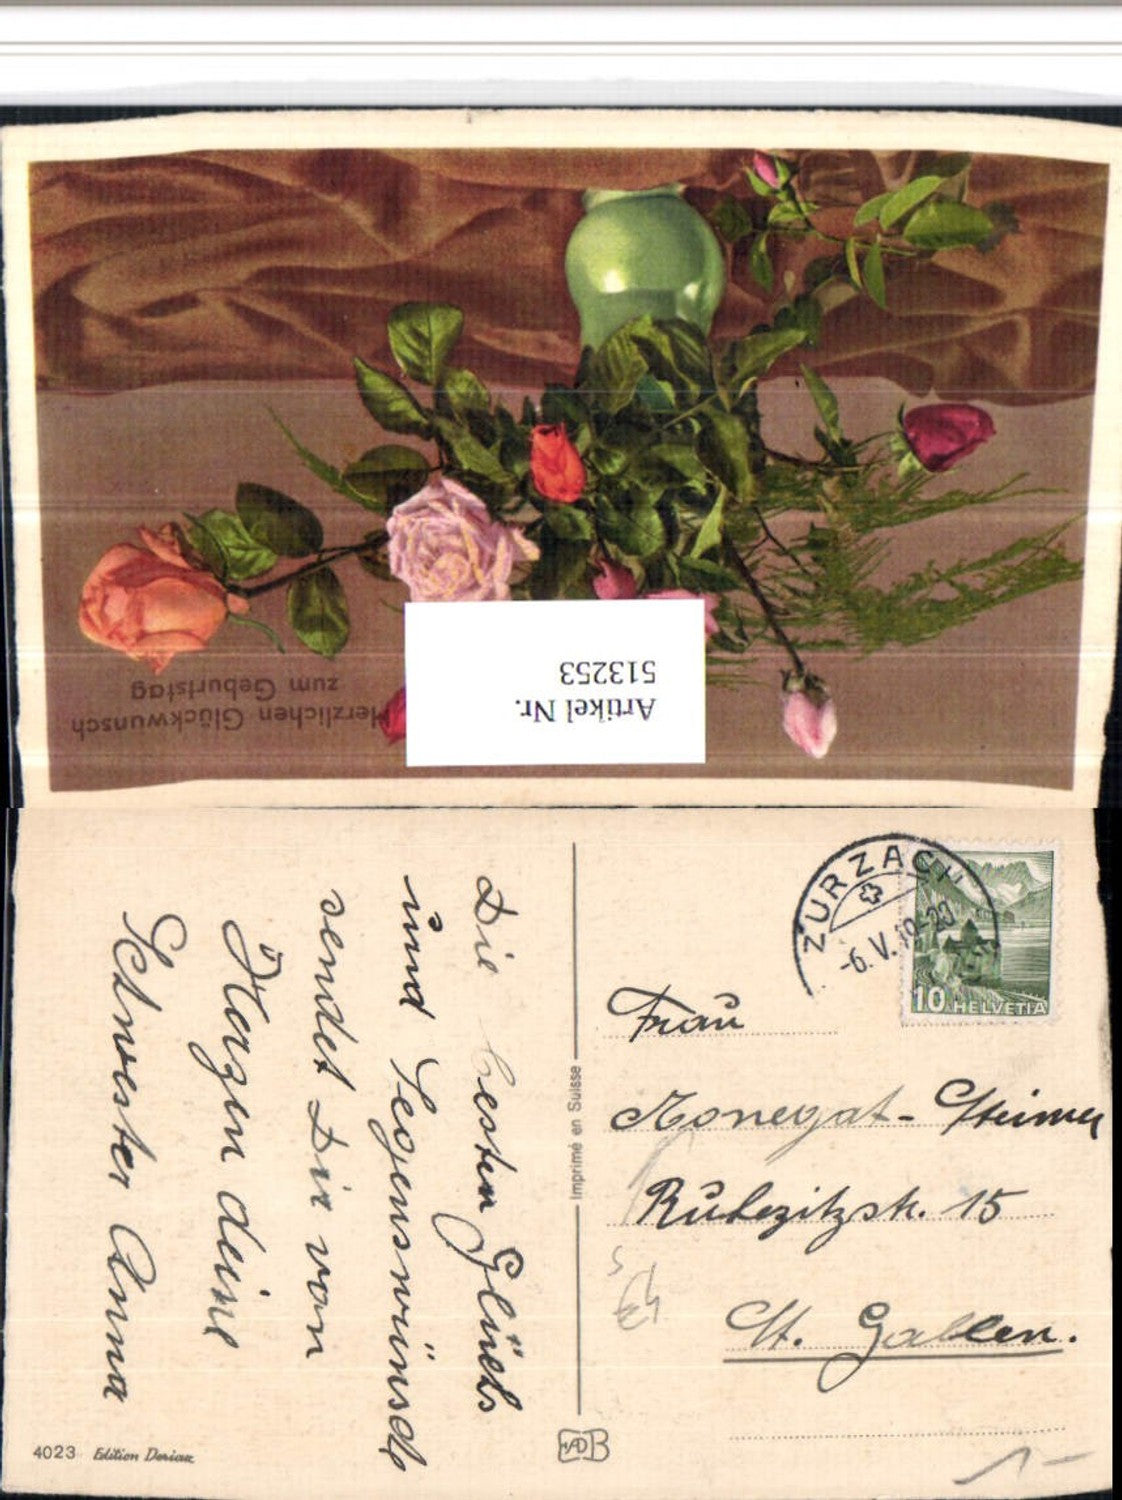 Herzlichen Glückwunsch
zum Geburtstag
Artikel Nr.
513253
Die besten Glücks
und Segenswünsche
sendet Dir von
Herzen deine
Schwester Anna
Imprimé en Suisse
4023 Edition Doriax
ZURZACH
-6.V.
10 HELVETIA
Frau
Monegat-Steimer
15
St. Gallen.